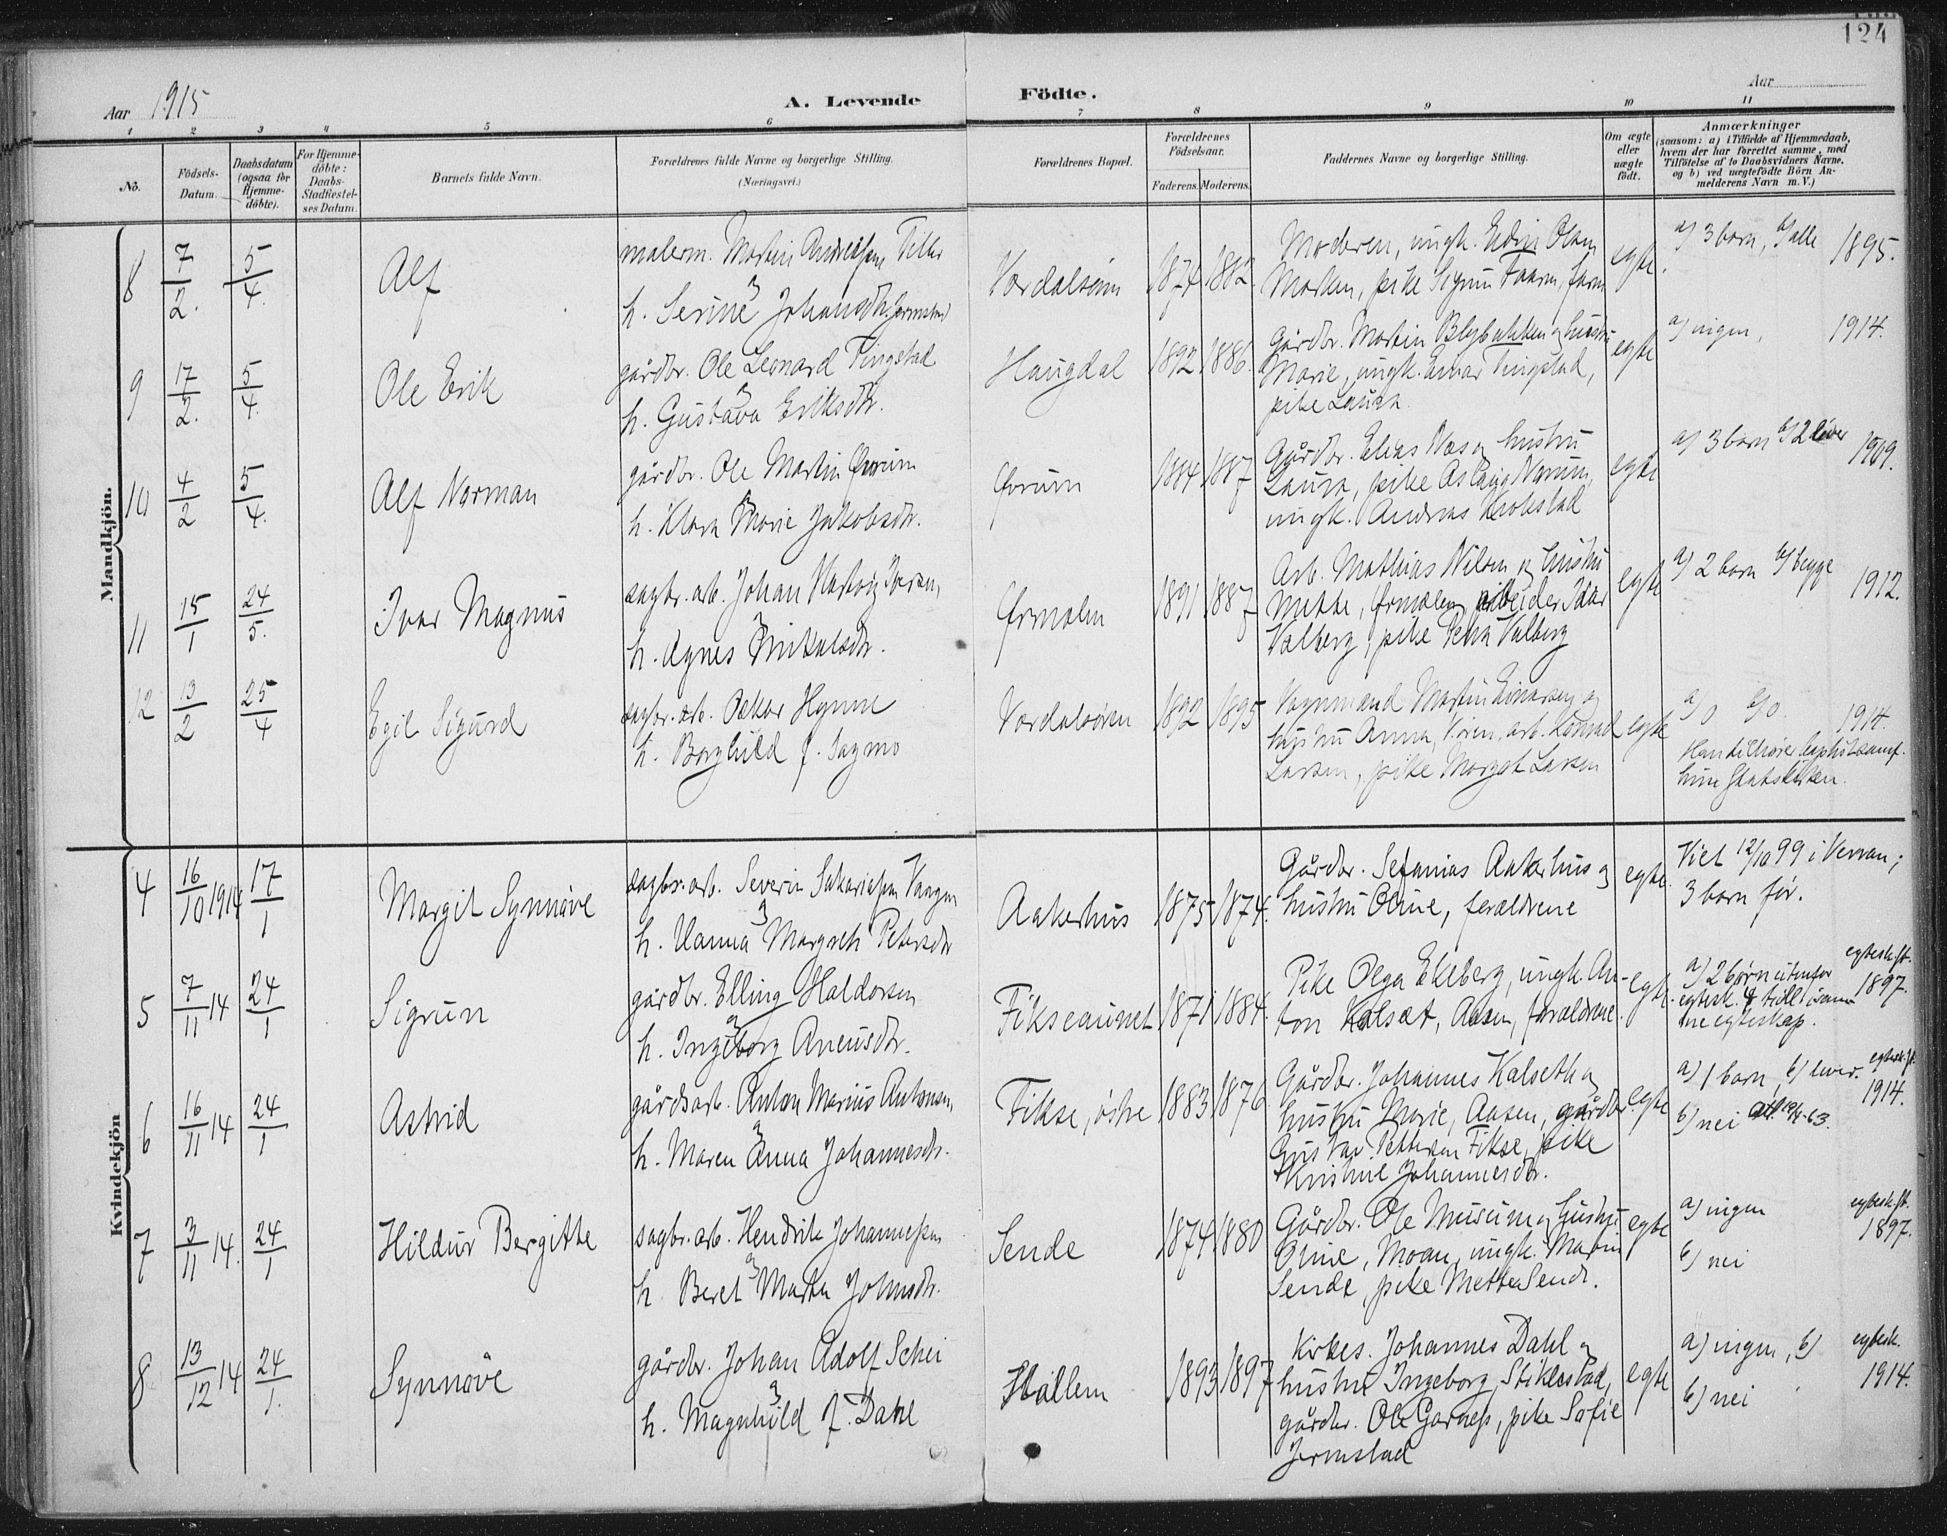 124
Aar 1915
A. Levende Födte.
Aar
1 2 3 4 5 6 7 8 9 10 11
No.
Födsels-Datum.
Daabsdatum (ogsaa for Hjemme-döbte).
For Hjemme-döbte: Daabs-Stadfæstel-ses Datum.
Barnets fulde Navn.
Forældrenes fulde Navne og borgerlige Stilling. (Næringsvei.)
Forældrenes Bopæl.
Forældrenes Födselsaar.
Faderens. Moderens.
Faddernes Navne og borgerlige Stilling.
Om ægte eller uægte födt.
Anmærkninger
(saasom: a) i Tilfælde af Hjemmedaab,
hvem der har forrettet samme, med
Tilföielse af to Daabsvidners Navne,
og b) ved uægtefödte Börn An-
melderens Navn m. V.)
Mandkjön.
8 7/2. 5/4. Alf
malerm. Martin Andreassen Tiller
h. Serine Johansdtr. Jermstad
Værdalsøren 1874 1882.
Moderen, ungk. Edvin Olsen
Marken, pike Sigrun
egte.
a) 3 barn, b) alle 1895.
9 17/2. 5/4. Ole Erik
gårdbr. Ole Leonard Tingstad
h. Gustava Eriksdtr.
Haugdal 1892 1886.
Gårdbr. Martin Blybakken og hustru
Marie, ungk. Einar Tingstad,
pike Laura.
egte
a) ingen, 1914.
10 4/2 5/4. Alf Norman
gårdbr. Ole Martin Ørum
h. Klara Marie Jakobsdtr.
Ørum 1884 1887
Gårdbr. Elias Næs og hustru
Laura, pike Aslaug
ungk. Andreas Krokstad
egte
a) 3 barn b) 2 lever 1909.
11 15/1 24/5. Ivar Magnus
sagbr. arb. Johan Hartvig Iversen,
h. Agnes Mikalsdtr.
Ørmelen 1891 1887
Arb. Mathias Nilsen og hustru
Mette, Ørmelen, arbeider Idar
Valberg, pike Petra Valberg
egte
a) 2 barn b) begge 1912.
12 13/2 25/4 Egil Sigurd
sagbr. arb. Oskar Hynne
h. Borghild f. Sagmo
Værdalsøren 1892 1895
Vognmand Martin Einarsen og
hustru Anna, Øren, arb. Konrad
Larsen, pike Margot Larsen
egte
a) 0 b) 0. 1914.
Han tilhører baptistsamf.
hun Statskirken.
Kvindekjön
4 16/10 1914 17/1 Margit Synnøve
sagbr. arb. Severin Sakariassen Vangen
h. Hanna Margreth Petersdtr
Aakerhus 1875 1874.
Gårdbr. Sefanias Aakerhus og
hustru Oline, forældrene
egte.
Viet 12/10 99 i Verran;
3 barn før.
5 7/11 14 24/1 Sigrun
gårdbr. Elling Haldorsen
h. Ingeborg Aneusdtr.
Fikseaunet 1871 1884.
Pike Olga Ekleberg, ungk. An-
ton Kalsæt, Aasen, forældrene.
egte.
a) 2 børn utenfor
egtesk. & tidligere
egteskap.
egtesk. st. 1897.
6 16/11 14 24/1 Astrid
gårdsarb. Anton Marius Antonsen,
h. Maren Anna Johannesdtr.
Fikse, østre 1883 1876
Gårdbr. Johannes Kalseth og
hustru Marie, Aasen, gårdbr
Gustav Pettersen Fikse, pike
Kristine Johannesdtr.
egte
a) 1 barn, b) lever. egtesk. st.
b) nei 1914.
7 3/11 14. 24/1 Hildur Bergitte
sagbr. arb. Hendrik Johannessen
h. Beret Marta Johnsdtr.
Sende 1874 1880
Gårdbr. Ole Musum og hustru
Oline, Moan, ungk. Martin
Sende, pike Mette Sende.
egte
a) ingen egtesk. st.
b) nei 1897.
8 13/12 14 24/1. Synnøve
gårdbr. Johan Adolf Schei
h. Magnhild f. Dahl
Hallem 1893 1897
Kirkes. Johannes Dahl og
hustru Ingeborg, Stiklestad,
gårdbr. Ole Garnes, pike Sofie
Jermstad
egte
a) ingen, b) egtesk.
b) nei 1914.